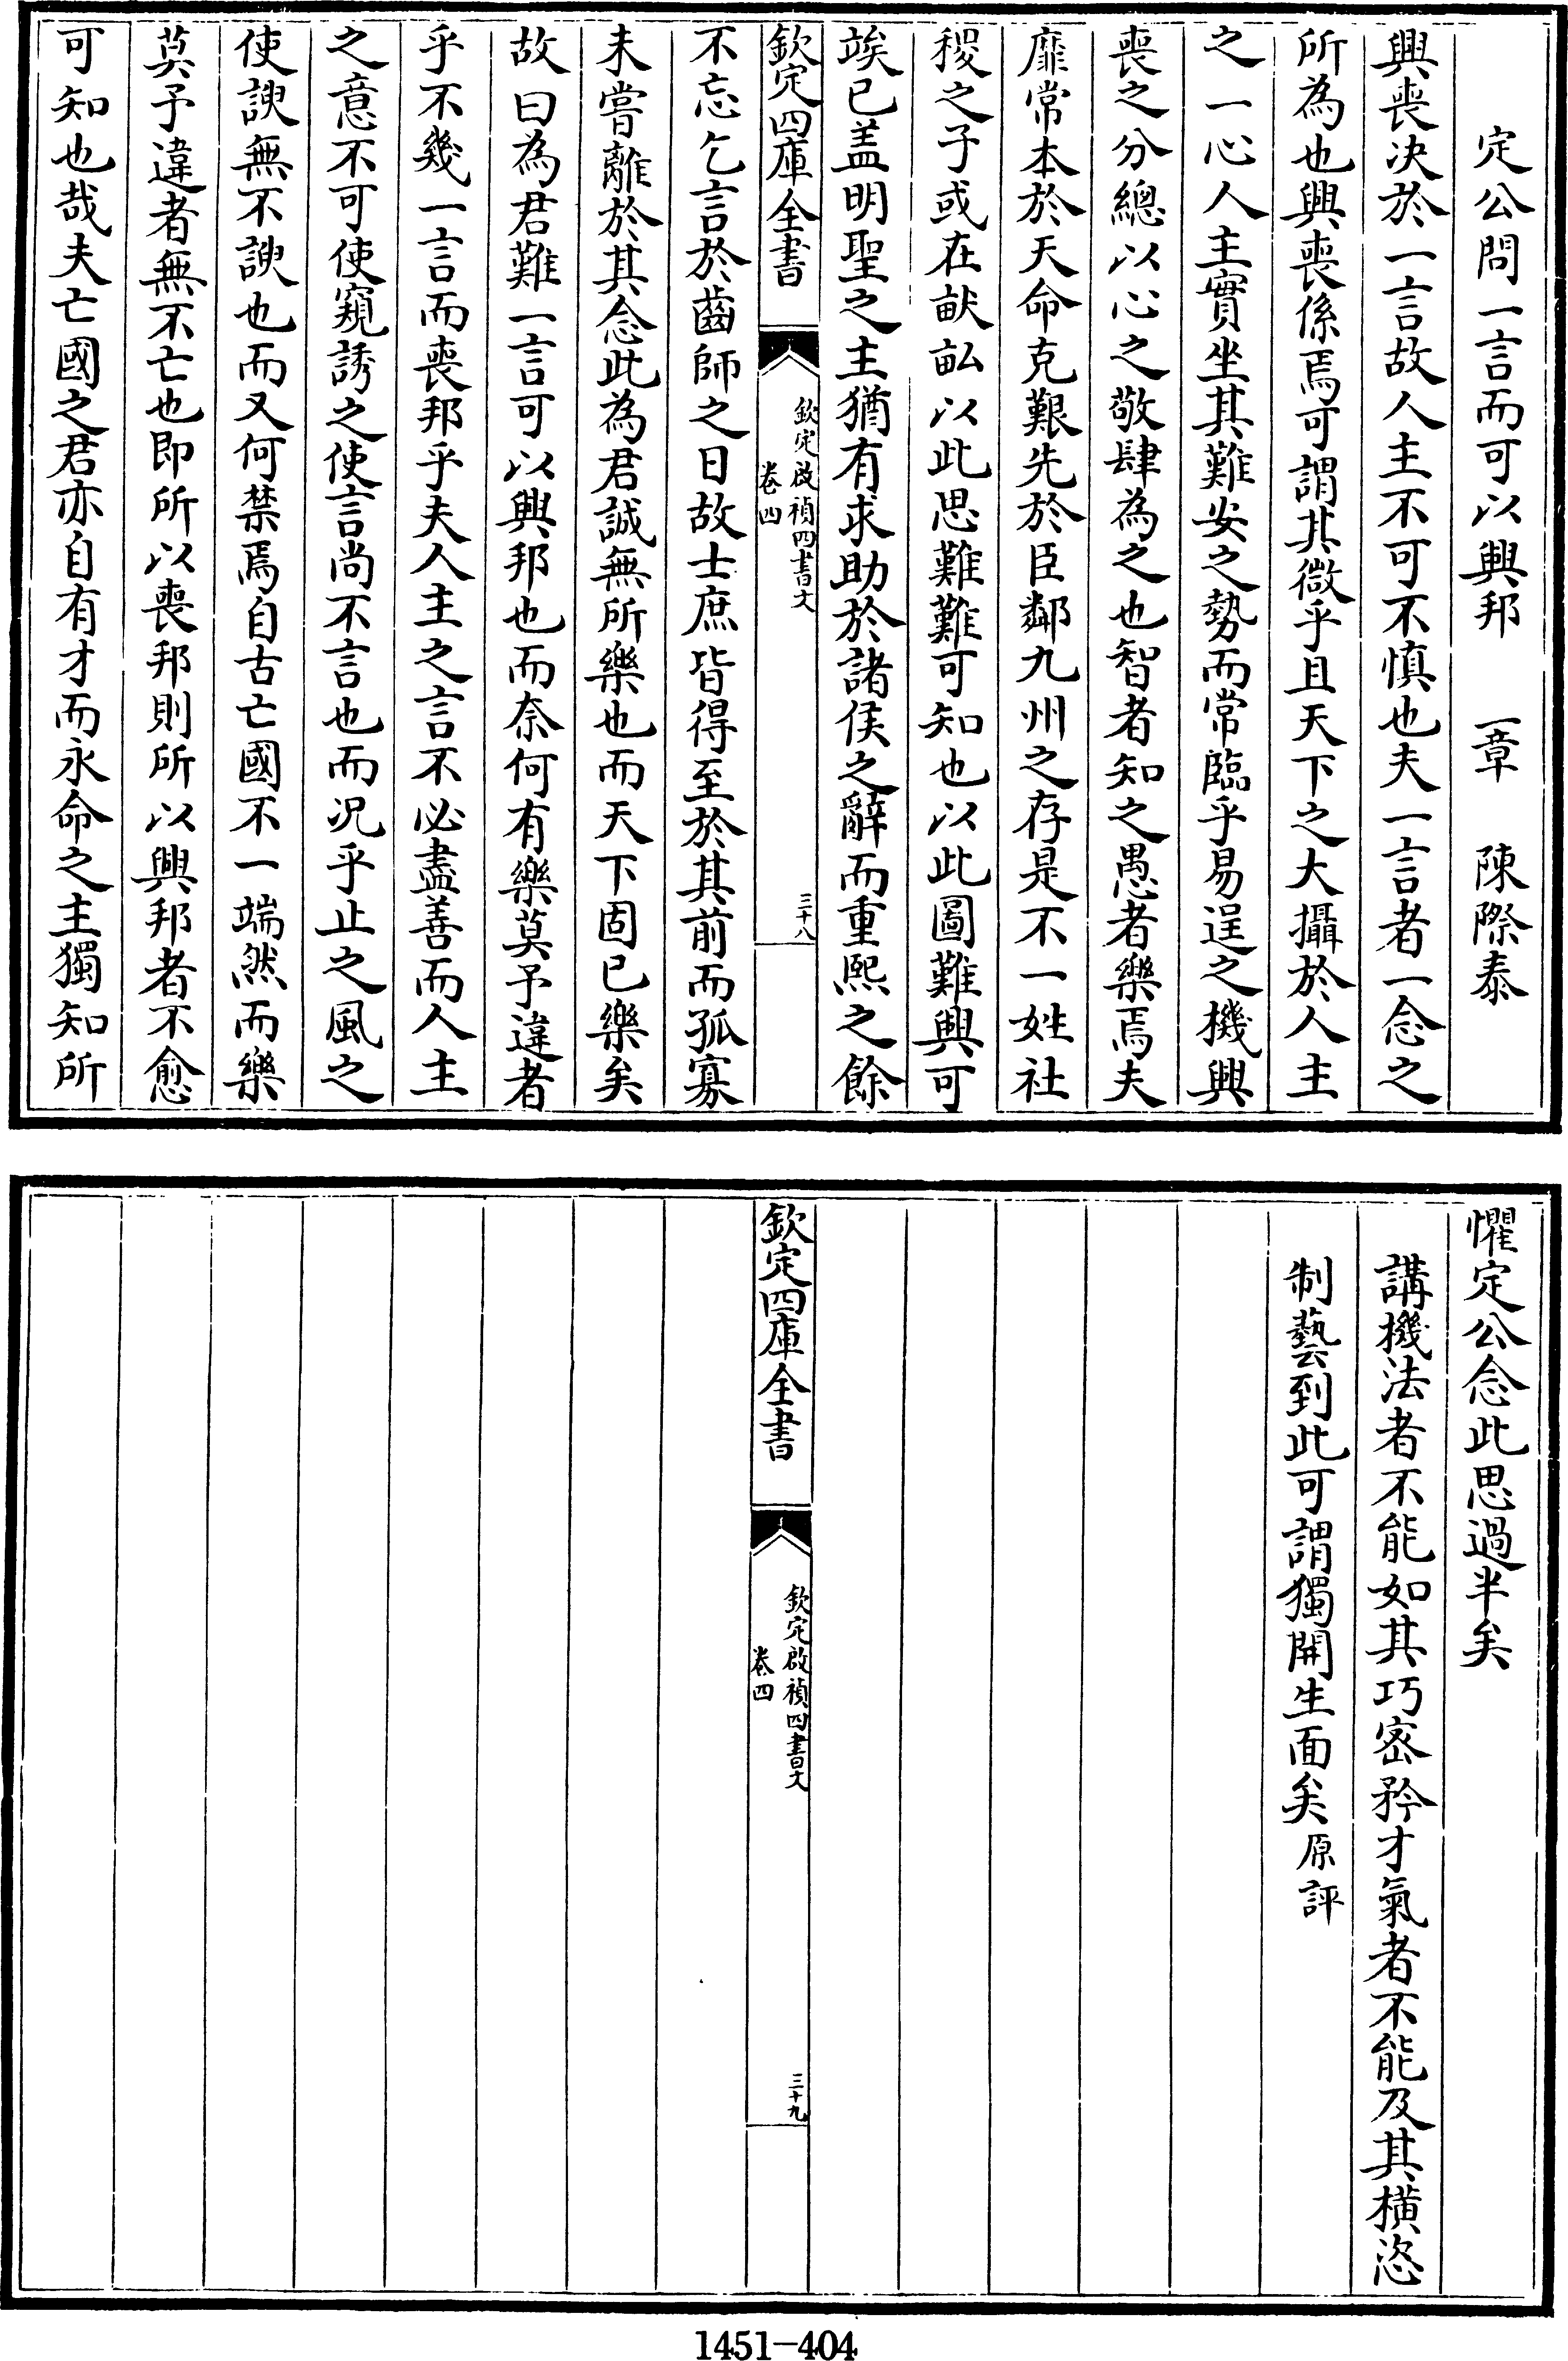 定公問一言而可以興邦　一章　陳際泰
興喪决於一言故人主不可不慎也夫一言者一念之
所為也興喪係焉可謂其微乎且天下之大攝於人主
之一心人主實坐其難安之勢而常臨乎易逞之機興
喪之分總以心之敬肆為之也智者知之愚者樂焉夫
靡常本於天命克艱先於臣鄰九州之存是不一姓社
稷之子或在畎畝以此思難難可知也以此圖難興可
竢已盖明聖之主猶有求助於諸侯之辭而重熙之餘
欽定四庫全書
欽定啟禎四書文
卷四
三十八
不忘乞言於齒師之日故士庶皆得至於其前而孤寡
未嘗離於其念此為君誠無所樂也而天下固已樂矣
故曰為君難一言可以興邦也而奈何有樂莫予違者
乎不幾一言而喪邦乎夫人主之言不必盡善而人主
之意不可使窺誘之使言尚不言也而况乎止之風之
使諛無不諛也而又何禁焉自古亡國不一端然而樂
莫予違者無不亡也即所以喪邦則所以興邦者不愈
可知也哉夫亡國之君亦自有才而永命之主獨知所
懼定公念此思過半矣
講機法者不能如其巧密矜才氣者不能及其橫恣
制藝到此可謂獨開生面矣原評
欽定四庫全書
欽定啟禎四書文
卷四
三十九
1451-404